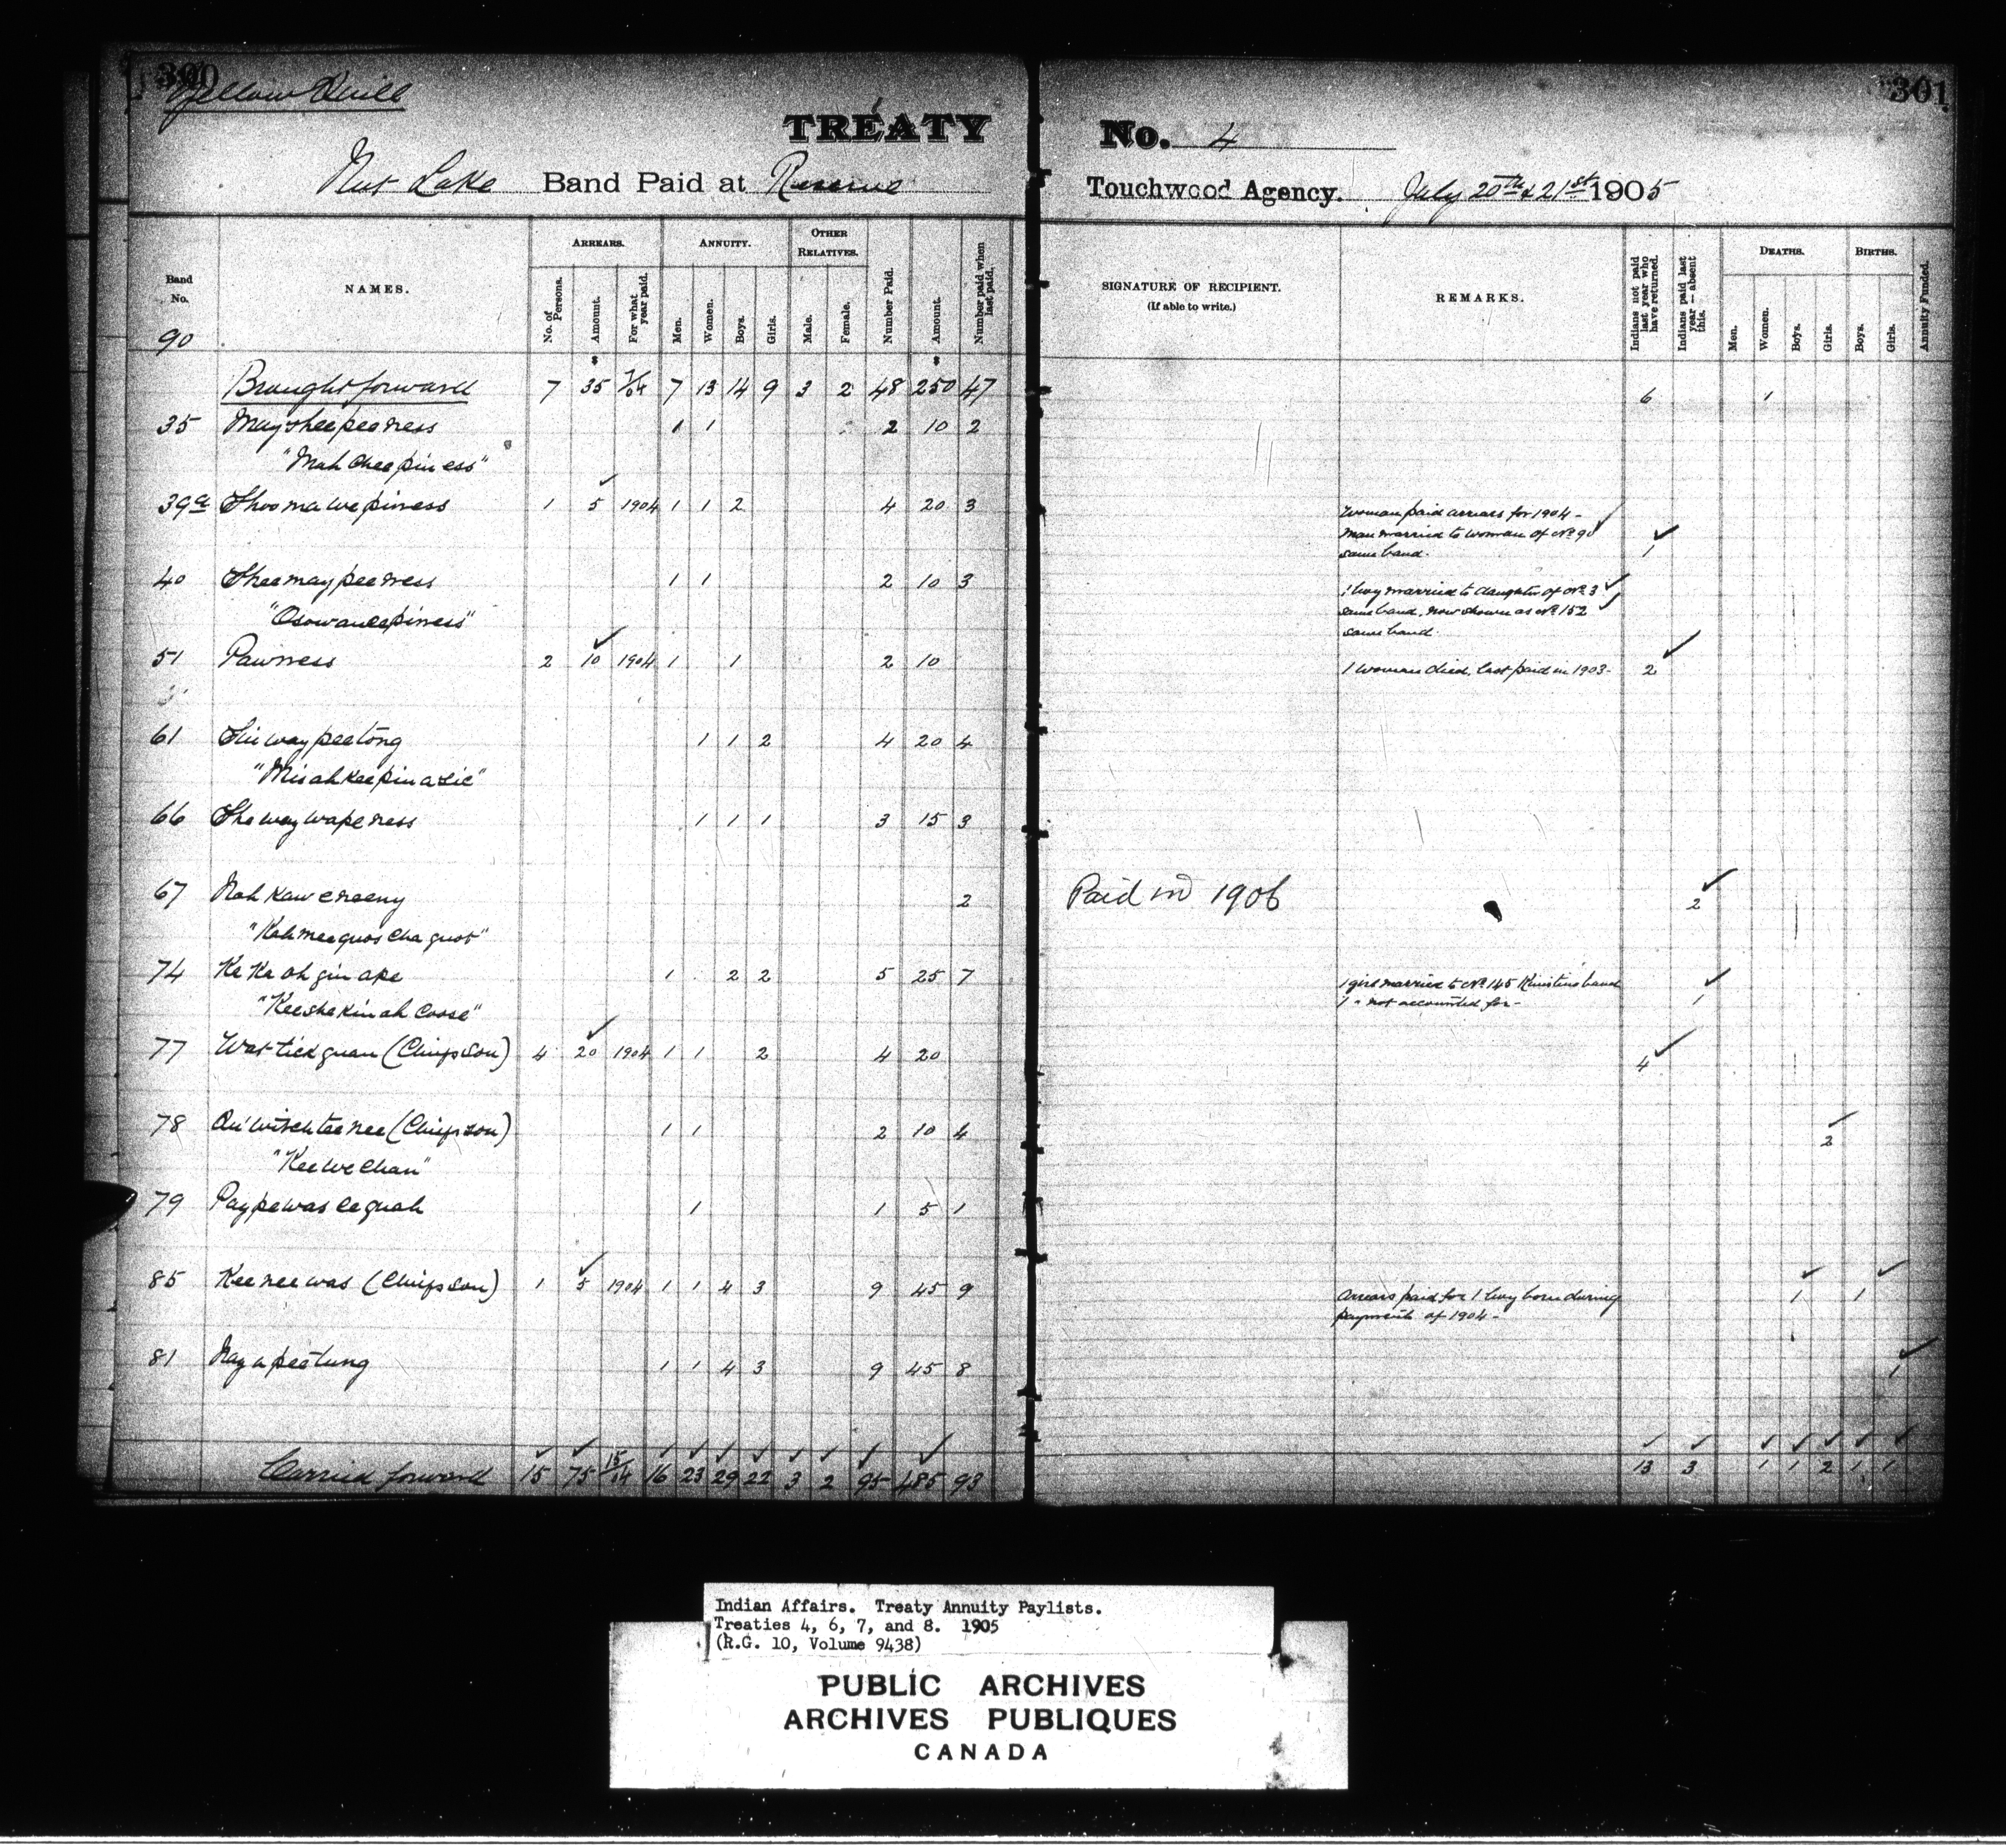 300
Yellow Quill
TREATY
Nut Lake Band Paid at Reserve
Band No.
90
NAMES.
ARREARS.
No. of Persons.
Amount.
For what year paid.
ANNUITY.
Men.
Women.
Boys.
Girls.
OTHER RELATIVES.
Male.
Female.
Number Paid.
Amount.
Number paid when last paid.
Brought forward 7 35 7/04 7 13 14 9 3 2 48 250 47
35 Mayshee peeness 1 1 2 10 2
"Mah chee piness"
39a Shoo ma we piness 1 5 1904 1 1 2 4 20 3
40 Shee may pee ness 1 1 2 10 3
"Osowaneepiness"
51 Pawness 2 10 1904 1 1 2 10
61 Shi way pee tong 1 1 2 4 20 4
"Misahkeepinasie"
66 She way wape ness 1 1 1 3 15 3
67 Nah kaw e neeny 2
"Kah mee quos cha quot"
74 Ke Ke oh gin ape 1 2 2 5 25 7
"Kee she kin ah coose"
77 Wat tick guan (Chips son) 4 20 1904 1 1 2 4 20
78 Au witch tee nee (Chips son) 1 1 2 10 4
"Kee we chan"
79 Pay pe was ce quah 1 1 5 1
85 Kee nee was (Chips son) 1 5 1904 1 1 4 3 9 45 9
81 Nay a pee tung 1 1 4 3 9 45 8
Carried forward 15 75 15/04 16 23 29 22 3 2 95 485 93
301
No. 4
Touchwood Agency. July 20th & 21st 1905
SIGNATURE OF RECIPIENT.
(If able to write.)
REMARKS.
Indians not paid last year who have returned.
Indians paid last year — absent this.
DEATHS.
Men.
Women.
Boys.
Girls.
BIRTHS.
Boys.
Girls.
Annuity Funded.
6 1
Woman paid arrears for 1904 -
Man married to woman of No 90
same band. 1
1 boy married to daughter of No 3
same band, now shown as No 152
same band.
1 woman died, last paid in 1903 - 2
Paid in 1906 2
1 girl married to No 145 Kinistino band
1 " not accounted for - 1
4
2
Arrears paid for 1 boy born during 1 1
payments of 1904 -
1
13 3 1 1 2 1 1
Indian Affairs. Treaty Annuity Paylists.
Treaties 4, 6, 7, and 8. 1905
(R.G. 10, Volume 9438)
PUBLIC ARCHIVES
ARCHIVES PUBLIQUES
CANADA